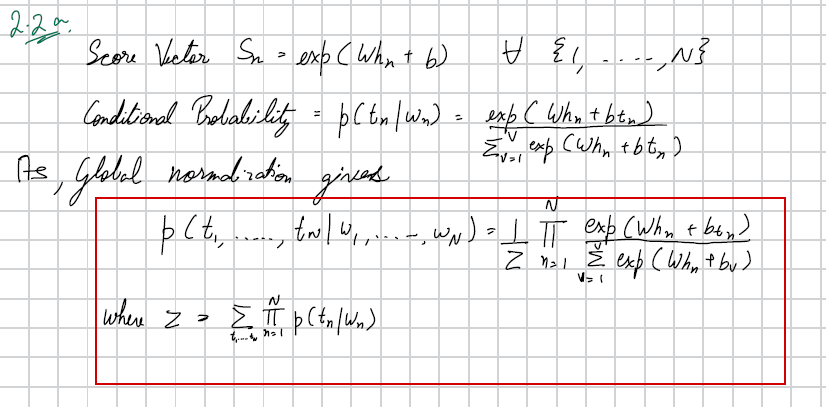 2.2a.
Score Vector Sn = exp(Whn + b) ∀ {1, ....., N}
Conditional Probability = p(tn|wn) = exp(Whn + btn) / Σ_{v=1}^{V} exp(Whn + btn)
As, Global normalization gives
p(t1, ....., tN | w1, ....., wN) = 1/Z ∏_{n=1}^{N} exp(Whn + btn) / Σ_{v=1}^{V} exp(Whn + bv)
where Z = Σ_{t1,...tN} ∏_{n=1}^{N} p(tn|wn)